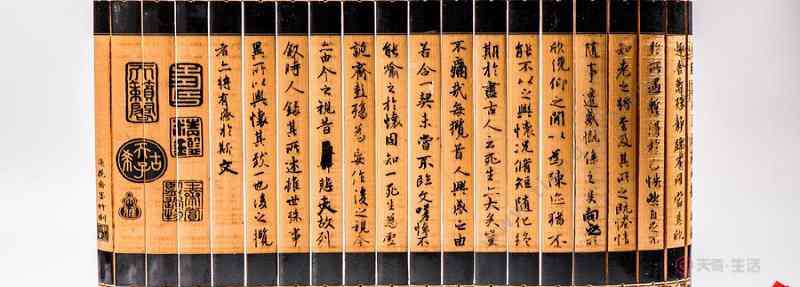 趣舍萬殊靜躁不同當其欣
於所遇蹔得於己怏然自足不
知老之將至及其所之既惓情
隨事遷感慨係之矣向之所
欣俛仰之閒以為陳迹猶不
能不以之興懷況脩短隨化終
期於盡古人云死生亦大矣豈
不痛哉每攬昔人興感之由
若合一契未嘗不臨文嗟悼不
能喻之於懷固知一死生為虛
誕齊彭殤為妄作後之視今
亦由今之視昔悲夫故列
敘時人錄其所述雖世殊事
異所以興懷其致一也後之攬
者亦將有感於斯文
天奇·生活